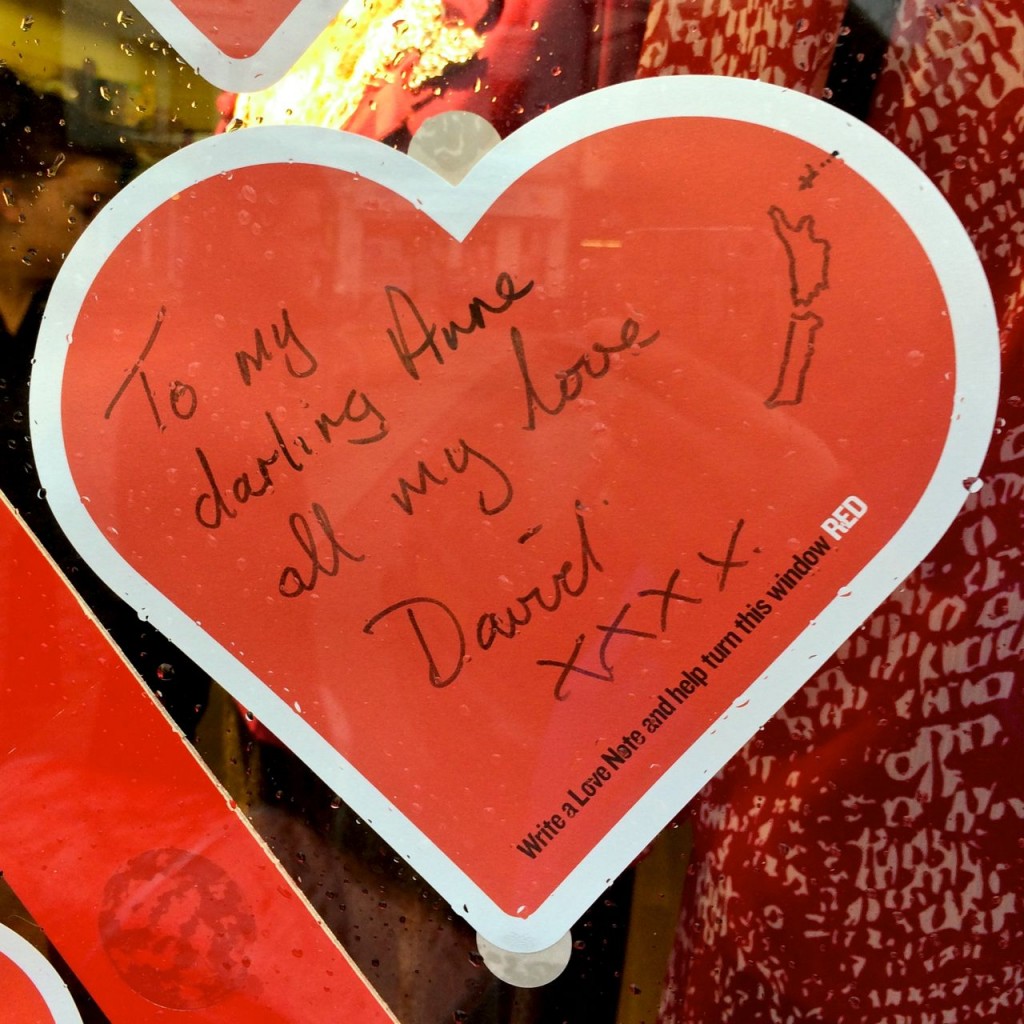 To my
darling Anne
all my love
David.
xxxx.
Write a Love Note and help turn this window RED